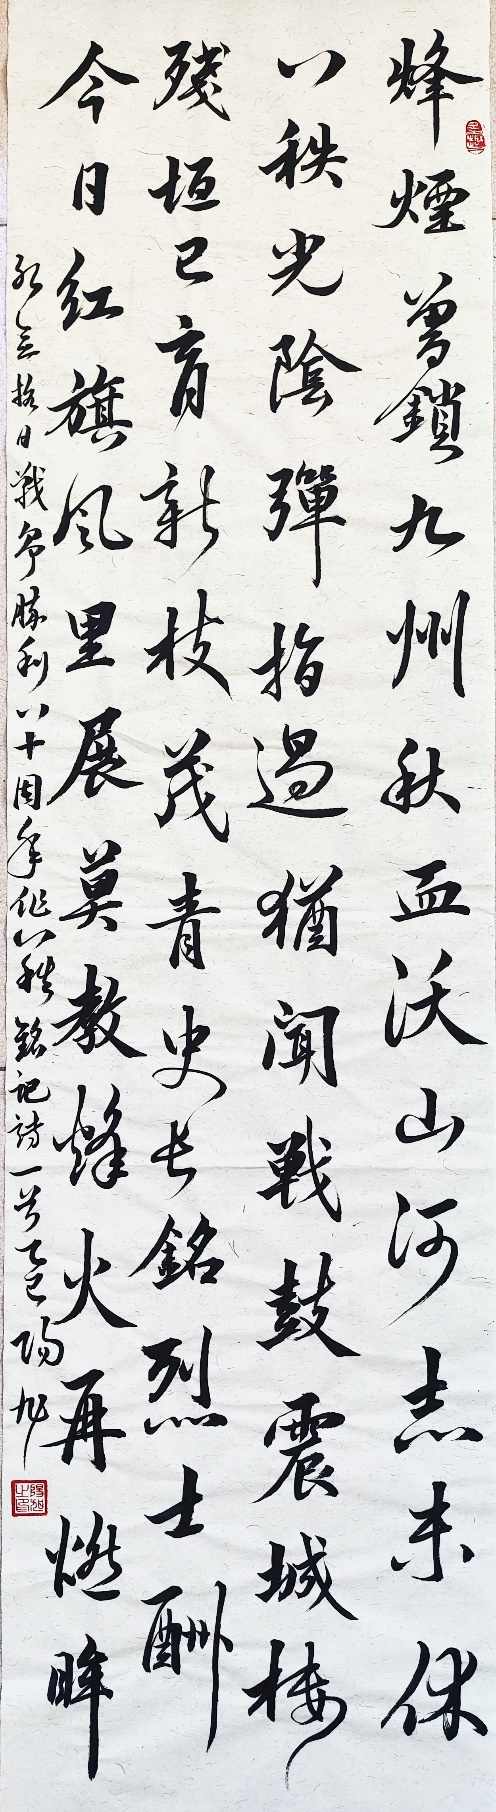 烽煙曾鎖九州秋血沃山河志未休
八秩光陰彈指過猶聞戰鼓震城楼
殘垣已育新枝茂青史长銘烈士酬
今日红旗风里展莫教烽火再燃眸
纪念抗日戰争勝利八十周年作八秩銘记詩一首乙巳陽旭